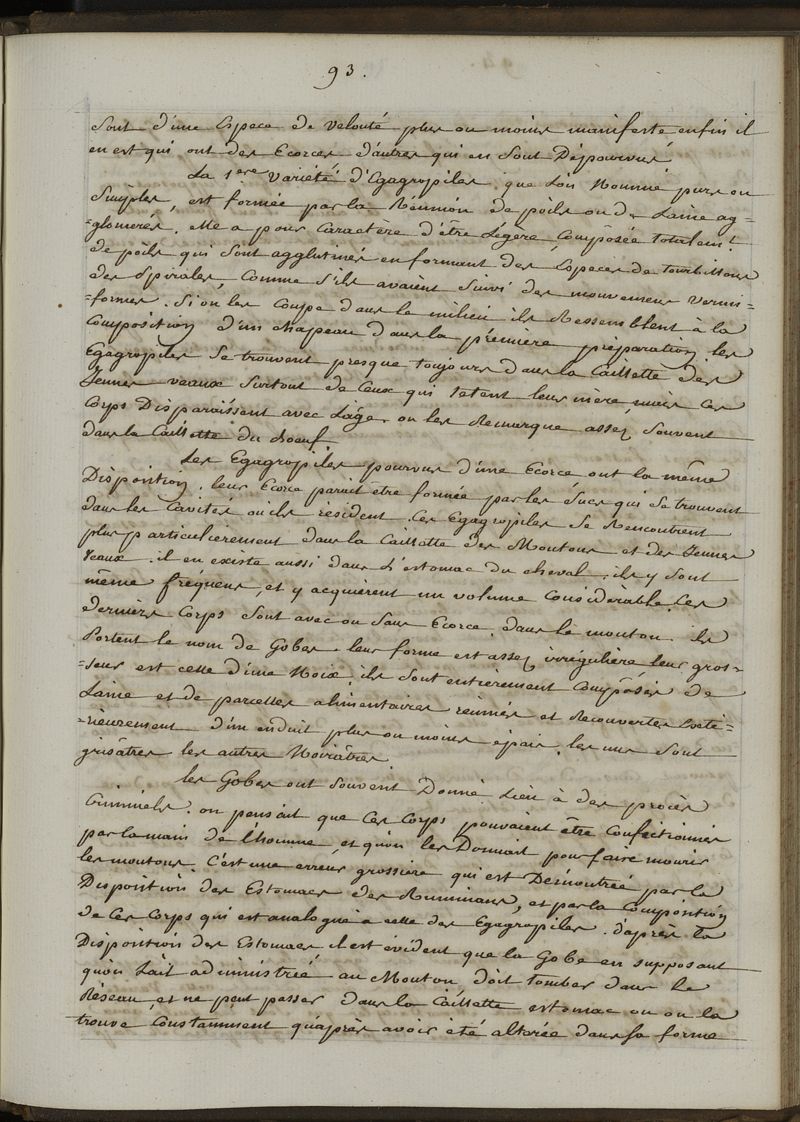 93.
Sont d'une Espece de velouté plus ou moins manifeste enfin il
en est qui ont des Ecorces d'autres qui en Sont Dépourvus
La 1ere Variété d'Egagropiles que l'on Nomme purs ou
Simples, est formée par la Réunion de poils ou de Laine ag=
=glomerés. elle a pour Caractère d'être Légère, Composée totalemt.
de poils qui Sont agglutinés en formant des Especes de tourbillons
des Spirales, Comme S'ils avaient Suivi des mouvemens vermi=
=formes. Si on les Coupe dans le milieu ils Ressemblent à la
Composition d'un chapeau dans la première préparation les
Egagropiles Se trouvent presque toujours dans la Caillette des
Jeunes veaux Surtout de Ceux qui tètent leur mère, mais Ces
Corps Disparaissent avec L'âge. on les Remarque assez Souvent
dans la Caillette du boeuf
Les Egagropiles pourvus d'une Ecorce ont la même
Disposition, leur Ecorce parait être formée par les Sucs qui Se trouvent
dans les Cavités où ils résident. Ces Egagropiles Se Rencontrent
plus particulièrement dans la Caillette des Moutons et des Jeunes
Veaux. il en existe aussi dans L'estomac du cheval, ils y Sont
même fréquens, et y acquièrent un volume Considérable. Ces
derniers Corps Sont avec ou Sans Ecorce. dans le mouton. ils
Portent le nom de Gobes. leur forme est assez irrégulière leur gros=
=seur est celle d'une Noix, ils Sont entièrement Composés de
Laine et de parcelles alimentaires réunies et Recouvertes exté=
=rieurement d'un enduit plus ou moins épais, les uns Sont
grisâtres les autres Noirâtres.
les Gobes ont Souvent Donné Lieu à des procès
Criminels. on pensait que Ces Corps pouvaient être Confectionnés
par la main de l'homme, et qu'on les Donnait pour faire mourir
les moutons. C'est une erreur grossière qui est Démontrée par la
Disposition des Estomacs des Ruminans, et par la Composition
de Ces Corps qui est analogue à celle des Egagropiles. d'après la
Disposition des Estomacs il est évident que la Gobe en supposant
qu'on L'ait administrée au Mouton, doit tomber dans le
Réseau, et ne peut passer dans la Caillette estomac ou on la
trouve Constamment qu'après avoir été altérée dans sa forme